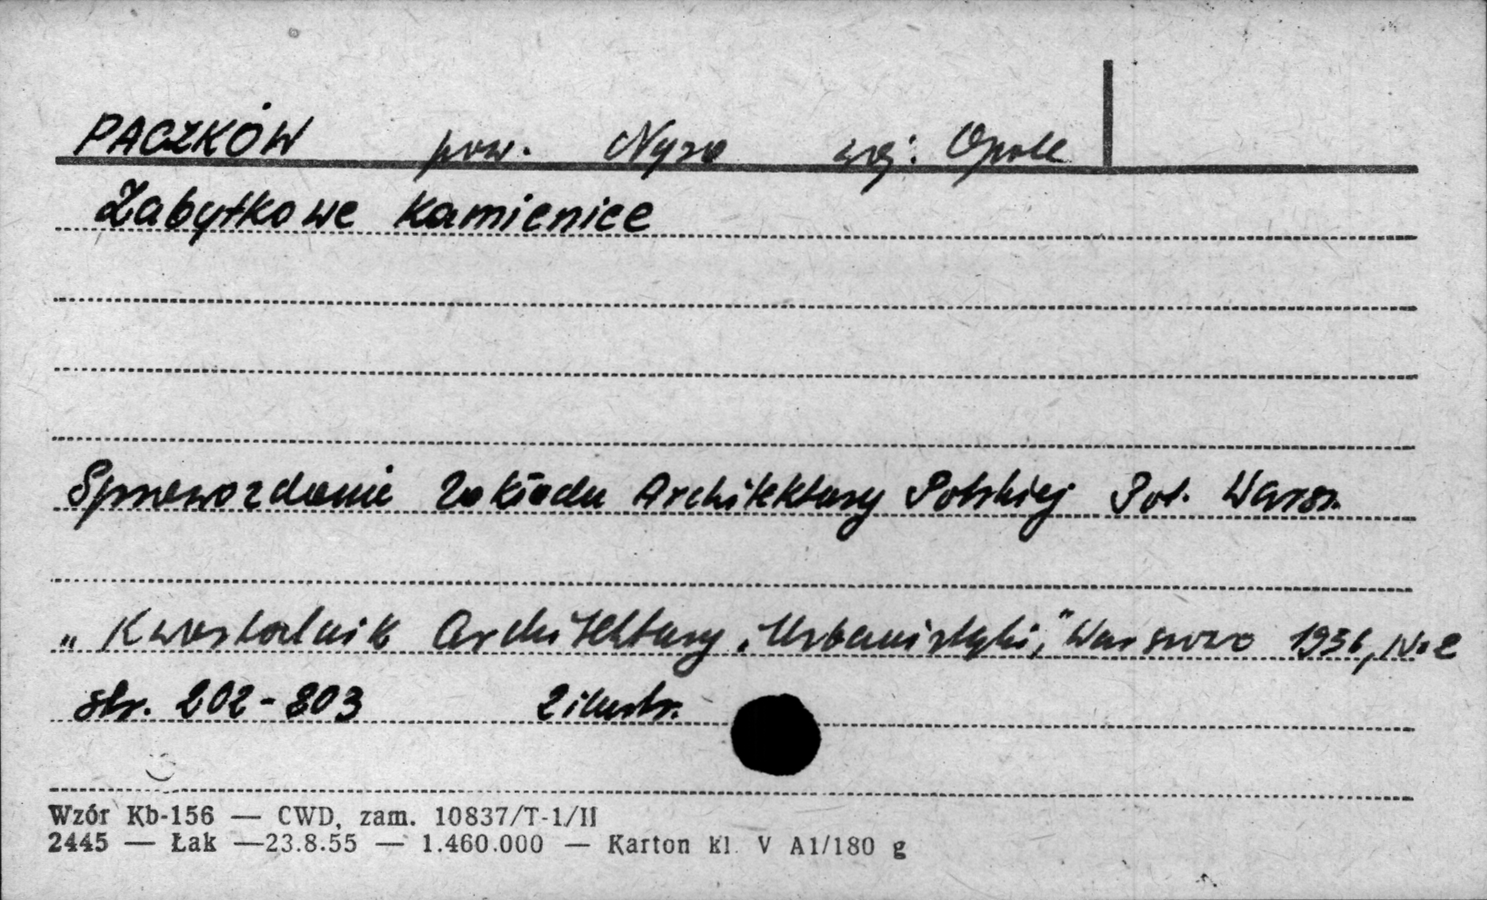 PACZKÓW pow. Nysa woj. Opole
Zabytkowe kamienice
Sprawozdanie Zakładu Architektury Polskiej Pol. Warsz.
„Kwartalnik Architektury i Urbanistyki," Warszawa 1956, No 2
str. 202-203 2 ilustr.
Wzór Kb-156 — CWD, zam. 10837/T-1/II
2445 — Łak —23.8.55 — 1.460.000 — Karton kl. V A1/180 g